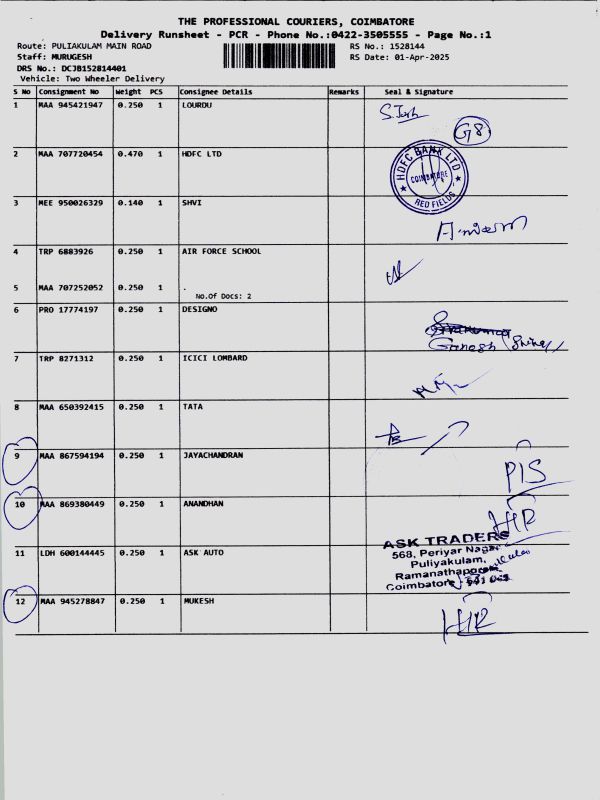 THE PROFESSIONAL COURIERS, COIMBATORE
Delivery Runsheet - PCR - Phone No.:0422-3505555 - Page No.:1
Route: PULIAKULAM MAIN ROAD
RS No.: 1528144
Staff: MURUGESH
RS Date: 01-Apr-2025
DRS No.: DCJB152814401
Vehicle: Two Wheeler Delivery
S No Consignment No Weight PCS Consignee Details Remarks Seal & Signature
1 MAA 945421947 0.250 1 LOURDU
G8
2 MAA 707720454 0.470 1 HDFC LTD
HDFC BANK LTD
COIMBATORE
RED FIELDS
3 MEE 950026329 0.140 1 SHVI
4 TRP 6883926 0.250 1 AIR FORCE SCHOOL
5 MAA 707252052 0.250 1 .
No.Of Docs: 2
6 PRO 17774197 0.250 1 DESIGNO
Ganesh
7 TRP 8271312 0.250 1 ICICI LOMBARD
8 MAA 650392415 0.250 1 TATA
9 MAA 867594194 0.250 1 JAYACHANDRAN
PIS
10 MAA 869380449 0.250 1 ANANDHAN
HR
11 LDH 600144445 0.250 1 ASK AUTO
ASK TRADERS
568, Periyar Nagar
Puliyakulam,
Ramanathapuram
Coimbatore
12 MAA 945278847 0.250 1 MUKESH
HR